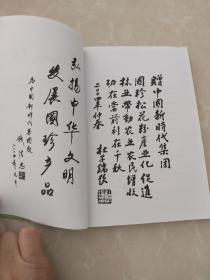 赠中国新时代集团
国珍松花粉产业化促进
林业带动农业农民增收
功在当前利在千秋
仲春
杜子端
弘扬中华文明
发展国珍产品
为中国新时代集团题
钱信忠